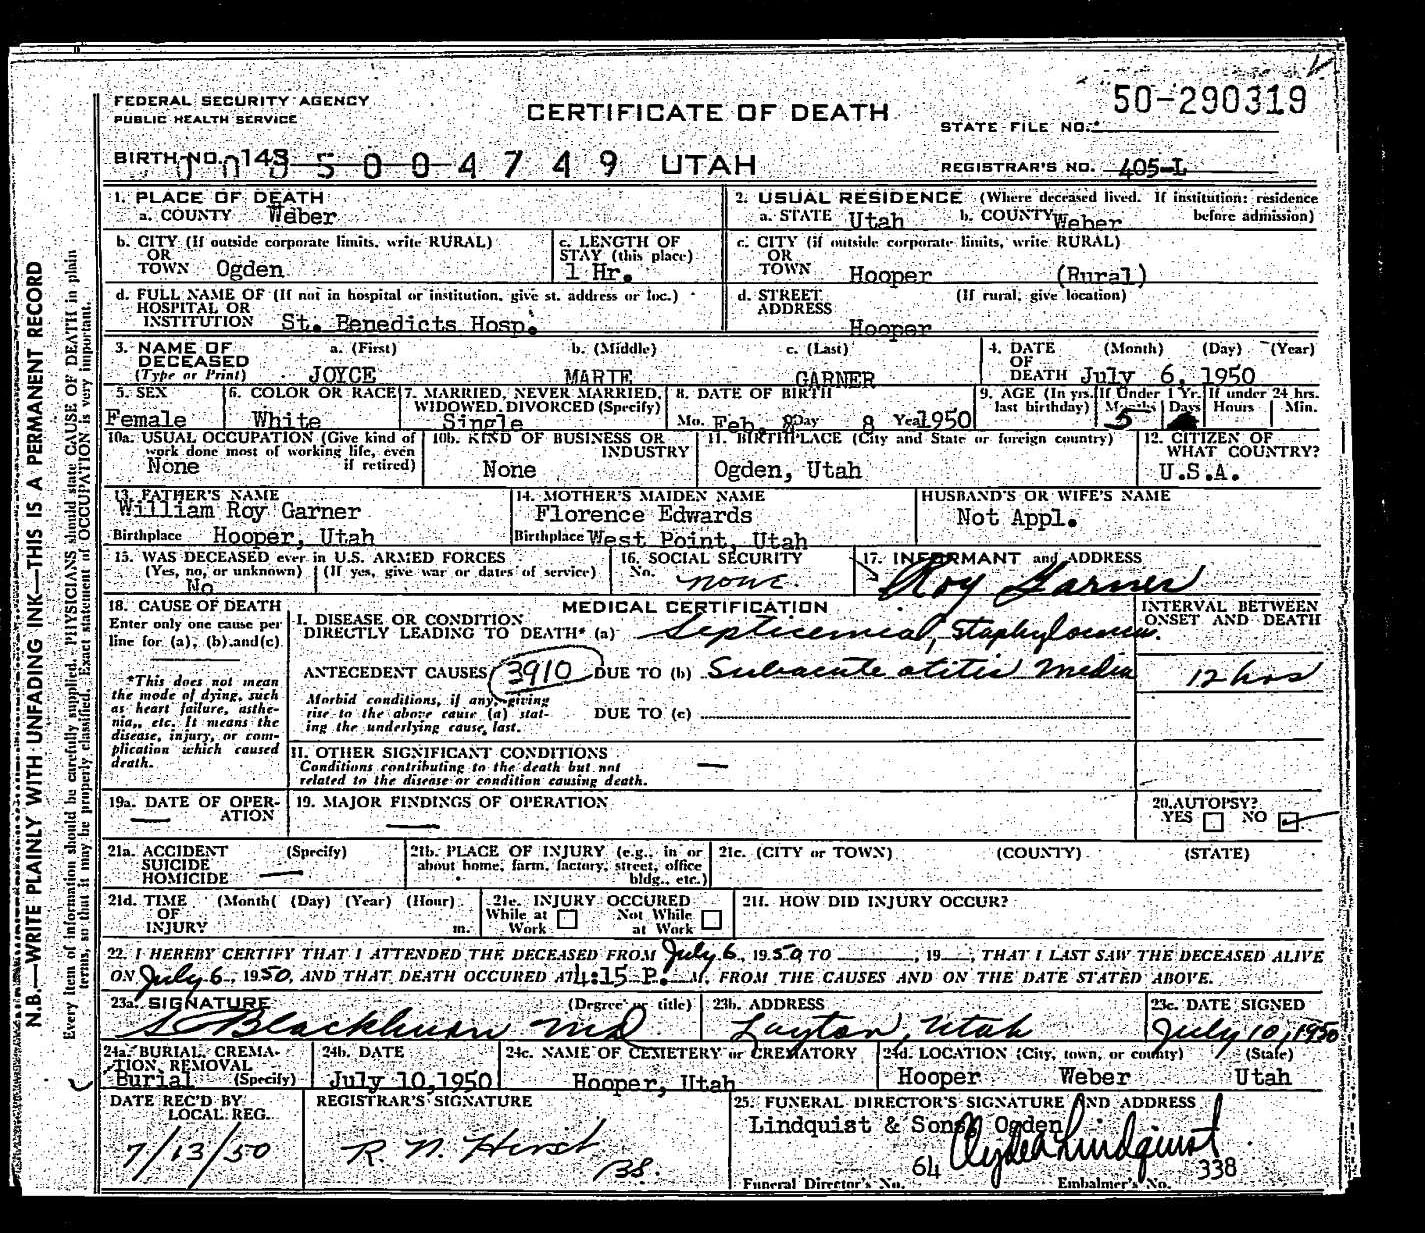 FEDERAL SECURITY AGENCY
PUBLIC HEALTH SERVICE
CERTIFICATE OF DEATH
50-290319
STATE FILE NO.
BIRTH NO. 143 5 0 0 4 7 4 9 UTAH
REGISTRAR'S NO. 405-L
1. PLACE OF DEATH
a. COUNTY Weber
2. USUAL RESIDENCE (Where deceased lived. If institution: residence before admission)
a. STATE Utah b. COUNTY Weber
b. CITY (If outside corporate limits, write RURAL)
OR
TOWN Ogden
c. LENGTH OF
STAY (this place)
1 Hr.
c. CITY (if outside corporate limits, write RURAL)
OR
TOWN Hooper (Rural)
d. FULL NAME OF (If not in hospital or institution, give st. address or loc.)
HOSPITAL OR
INSTITUTION St. Benedicts Hosp.
d. STREET (If rural, give location)
ADDRESS
Hooper
3. NAME OF a. (First) b. (Middle) c. (Last)
DECEASED
(Type or Print) JOYCE MARIE GARNER
4. DATE (Month) (Day) (Year)
OF
DEATH July 6, 1950
5. SEX
Female
6. COLOR OR RACE
White
7. MARRIED, NEVER MARRIED,
WIDOWED, DIVORCED (Specify)
Single
8. DATE OF BIRTH
Mo. Feb. 8 Day 8 Year 1950
9. AGE (In yrs. last birthday) If Under 1 Yr. If under 24 hrs.
Months 5 Days Hours Min.
10a. USUAL OCCUPATION (Give kind of
work done most of working life, even
if retired)
None
10b. KIND OF BUSINESS OR
INDUSTRY
None
11. BIRTHPLACE (City and State or foreign country)
Ogden, Utah
12. CITIZEN OF
WHAT COUNTRY?
U.S.A.
13. FATHER'S NAME
William Roy Garner
Birthplace Hooper, Utah
14. MOTHER'S MAIDEN NAME
Florence Edwards
Birthplace West Point, Utah
HUSBAND'S OR WIFE'S NAME
Not Appl.
15. WAS DECEASED ever in U.S. ARMED FORCES
(Yes, no, or unknown) (If yes, give war or dates of service)
No
16. SOCIAL SECURITY
No. none.
17. INFORMANT and ADDRESS
Roy Garner
18. CAUSE OF DEATH
Enter only one cause per
line for (a), (b) and (c)
*This does not mean
the mode of dying, such
as heart failure, asthe-
nia, etc. It means the
disease, injury, or com-
plication which caused
death.
MEDICAL CERTIFICATION
INTERVAL BETWEEN
ONSET AND DEATH
I. DISEASE OR CONDITION
DIRECTLY LEADING TO DEATH* (a) Septicemia, Staphylococcus.
ANTECEDENT CAUSES 3910 DUE TO (b) Subacute otitis Media 12 hrs
Morbid conditions, if any, giving
rise to the above cause (a) stat-
ing the underlying cause last.
DUE TO (c)
II. OTHER SIGNIFICANT CONDITIONS —
Conditions contributing to the death but not
related to the disease or condition causing death.
19a. DATE OF OPER-
ATION —
19. MAJOR FINDINGS OF OPERATION
—
20. AUTOPSY?
YES NO
21a. ACCIDENT (Specify)
SUICIDE
HOMICIDE —
21b. PLACE OF INJURY (e.g., in or
about home, farm, factory, street, office
bldg., etc.)
21c. (CITY or TOWN) (COUNTY) (STATE)
21d. TIME (Month( (Day) (Year) (Hour)
OF
INJURY m.
21e. INJURY OCCURED
While at Not While
Work at Work
21f. HOW DID INJURY OCCUR?
22. I HEREBY CERTIFY THAT I ATTENDED THE DECEASED FROM July 6, 1950 TO , 19 , THAT I LAST SAW THE DECEASED ALIVE
ON July 6, 1950, AND THAT DEATH OCCURED AT 4:15 P. M. FROM THE CAUSES AND ON THE DATE STATED ABOVE.
23a. SIGNATURE (Degree or title)
Blackburn MD
23b. ADDRESS
Layton, Utah
23c. DATE SIGNED
July 10, 1950
24a. BURIAL, CREMA-
TION, REMOVAL
Burial (Specify)
24b. DATE
July 10, 1950
24c. NAME OF CEMETERY or CREMATORY
Hooper, Utah
24d. LOCATION (City, town, or county) (State)
Hooper Weber Utah
DATE REC'D BY
LOCAL REG.
7/13/50
REGISTRAR'S SIGNATURE
25. FUNERAL DIRECTOR'S SIGNATURE AND ADDRESS
Lindquist & Sons, Ogden
Lindquist
64 338
Funeral Director's No. Embalmer's No.
N.B.—WRITE PLAINLY WITH UNFADING INK—THIS IS A PERMANENT RECORD
Every item of information should be carefully supplied. PHYSICIANS should state CAUSE OF DEATH in plain
terms, so that it may be properly classified. Exact statement of OCCUPATION is very important.